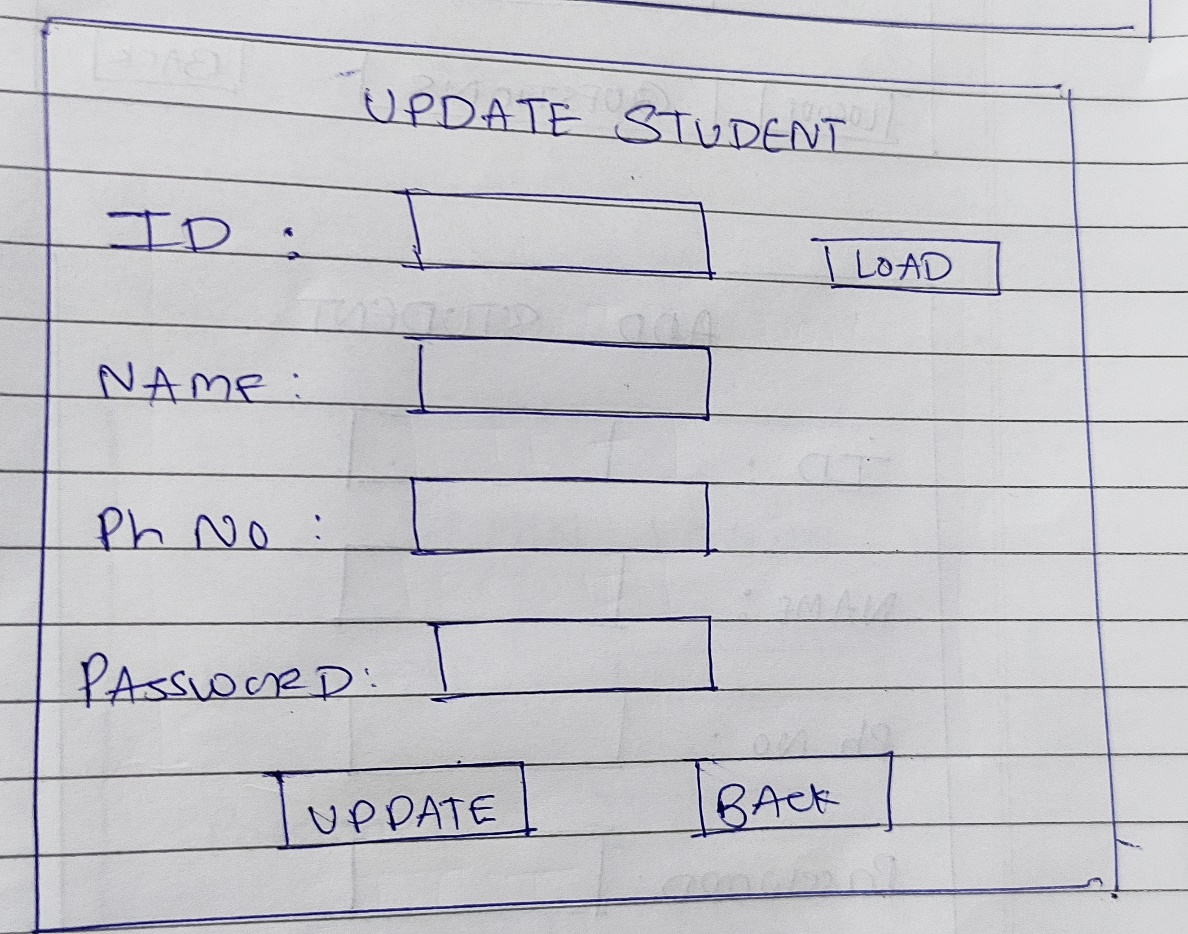 UPDATE STUDENT
ID :
LOAD
NAME :
Ph No :
PASSWORD:
UPDATE
BACK